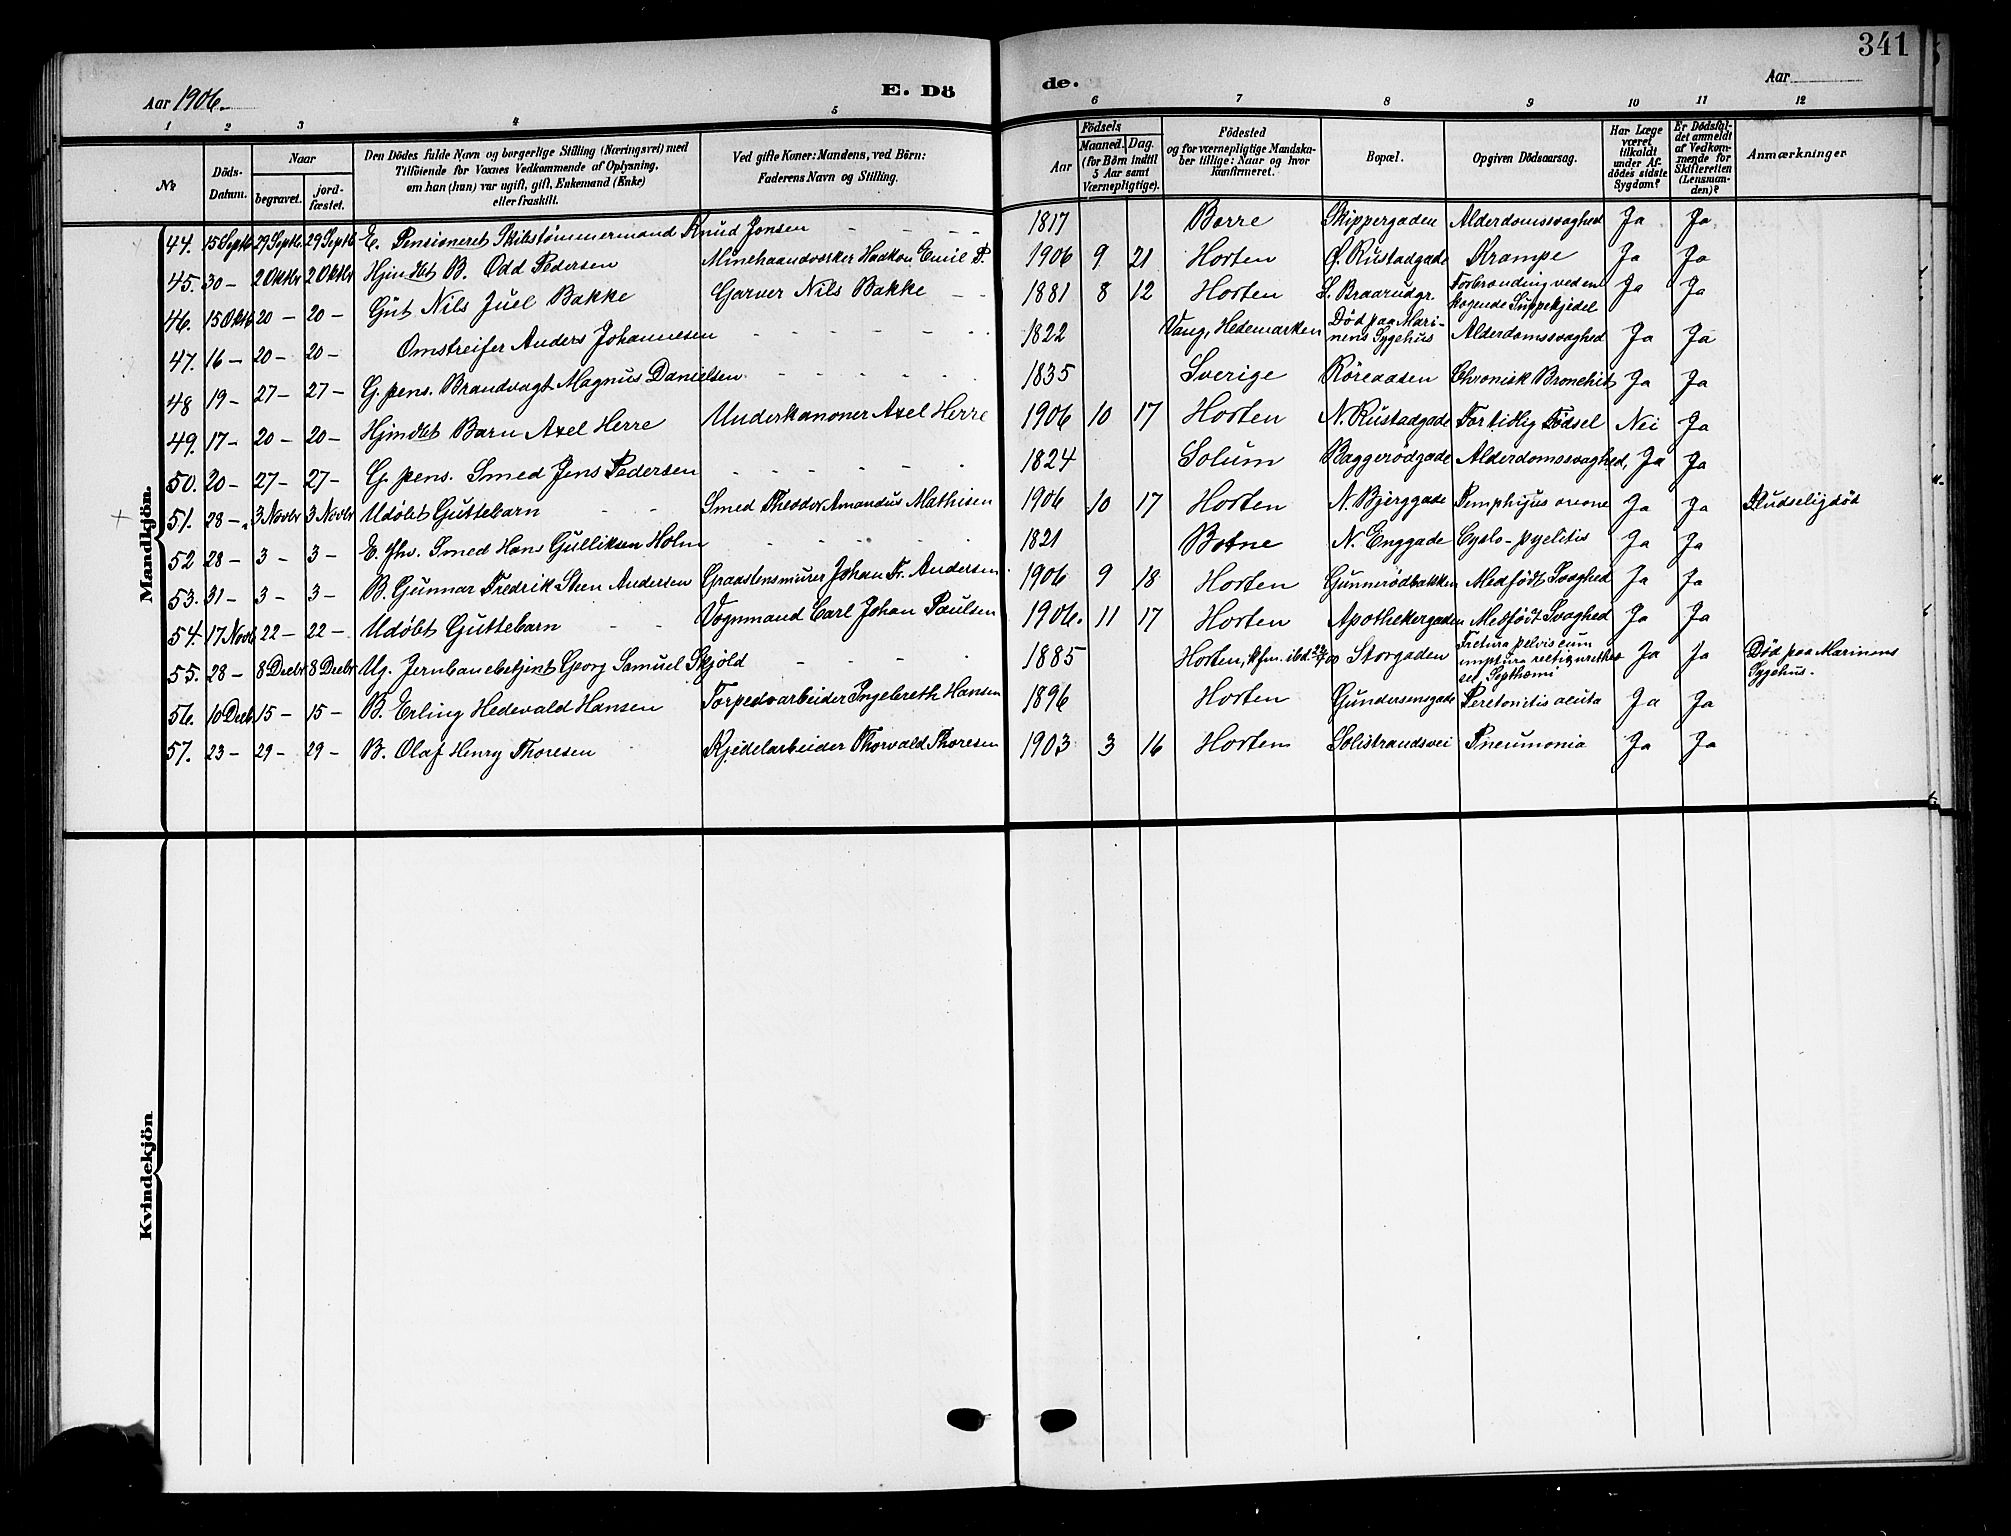 341
Aar 1906.
E. Dö
de.
Aar
1 2 3 4 5
6 7 8 9 10 11 12
№
Döds-
Datum.
Naar
begravet.
jord-
fæstet.
Den Dödes fulde Navn og borgerlige Stilling (Næringsvei) med
Tilföiende for Voxnes Vedkommende af Oplysning,
om han (hun) var ugift, gift, Enkemand (Enke)
eller fraskilt.
Ved gifte Koner: Mandens, ved Börn:
Faderens Navn og Stilling.
Födsels
Aar
Maaned. Dag.
(for Börn indtil
5 Aar samt
Værnepligtige).
Födested
og for værnepligtige Mandska-
ber tillige: Naar og hvor
konfirmeret.
Bopæl.
Opgiven Dödsaarsag.
Har Læge
været
tilkaldt
under Af-
dödes sidste
Sygdom?
Er Dödsfal-
det anmeldt
af Vedkom-
mende for
Skifteretten
(Lensman-
den)?
Anmærkninger
Mandkjön.
44. 15 Septb 29 Septb 29 Septb E. Pensioneret Skibstømmermand Knud Jonsen - - - - 1817 Borre Skippergaden Alderdomssvaghed Ja Ja
45. 30 - 2 Oktbr 2 Oktbr Hjmdbt B. Odd Pedersen Minehaandverker Haakon Emil P. 1906 9 21 Horten Ø. Rustadgade Krampe Ja Ja
46. 15 Oktb 20 - 20 - Gut Nils Juel Bakke Garver Nils Bakke - - 1881 8 12 Horten S. Braarudgr. Forbrænding ved en kogende Suppekjedel Ja Ja
47. 16 - 20 - 20 - Omstreifer Anders Johannesen - - - - 1822 Vang, Hedemarken Død paa Marinens Sygehus Alderdomssvaghed Ja Ja
48 19 - 27 - 27 - G. pens. Brandvagt Magnus Danielsen - - - - 1835 Sverige Röreaasen Chronisk Bronchit Ja Ja
49. 17 - 20 - 20 - Hjmdbt Barn Axel Herre Underkanoner Axel Herre 1906 10 17 Horten N. Rustadgade For tidlig Fødsel Nei Ja
50. 20 - 27 - 27 - G. pens. Smed Jens Pedersen - - - - 1824 Solum Baggerødgade Alderdomssvaghed, Ja Ja
51. 28 - 3 Novbr 3 Novbr Udöbt Guttebarn - - Smed Theodor Amandus Mathisen 1906 10 17 Horten N. Bjerggade Pemphigus Ja Ja
52 28 - 3 - 3 - E. fhv. Smed Hans Gulliksen Holm - - - - 1821 Botne N. Enggade Cysto-pyelitis Ja Ja
53. 31 - 3 - 3 - B. Gunnar Fredrik Steen Andersen Graastensmurer Johan Fr. Andersen 1906 9 18 Horten Gunnerødbakken Medfødt Svaghed Ja Ja
54. 17 Novb 22 - 22 - Udöbt Guttebarn - - Vognmand Carl Johan Paulsen 1906. 11 17 Horten Apothekergaden Medfødt Svaghed Ja Ja
55. 28 - 8 Decbr 8 Decbr Ug. Jernbanebetjent Georg Samuel Skjöld - - - - 1885 Horten, kfm. ibd. Storgaden pelvis cum ruptura Ja Ja Død paa Marinens Sygehus.
56. 10 Decb 15 - 15 - B. Erling Hedevald Hansen Torpedoarbeider Ingebreth Hansen 1896 Horten Gundersensgade Peretonitis acuta Ja Ja
57. 23 - 29 - 29 - B. Olaf Henry Thoresen Kjedelarbeider Thorvald Thoresen 1903 3 16 Horten Solistrandsvei Pneumonia Ja Ja
Kvindekjön